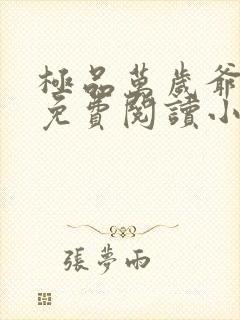 極品萬歲爺
免費閱讀小
張夢雨